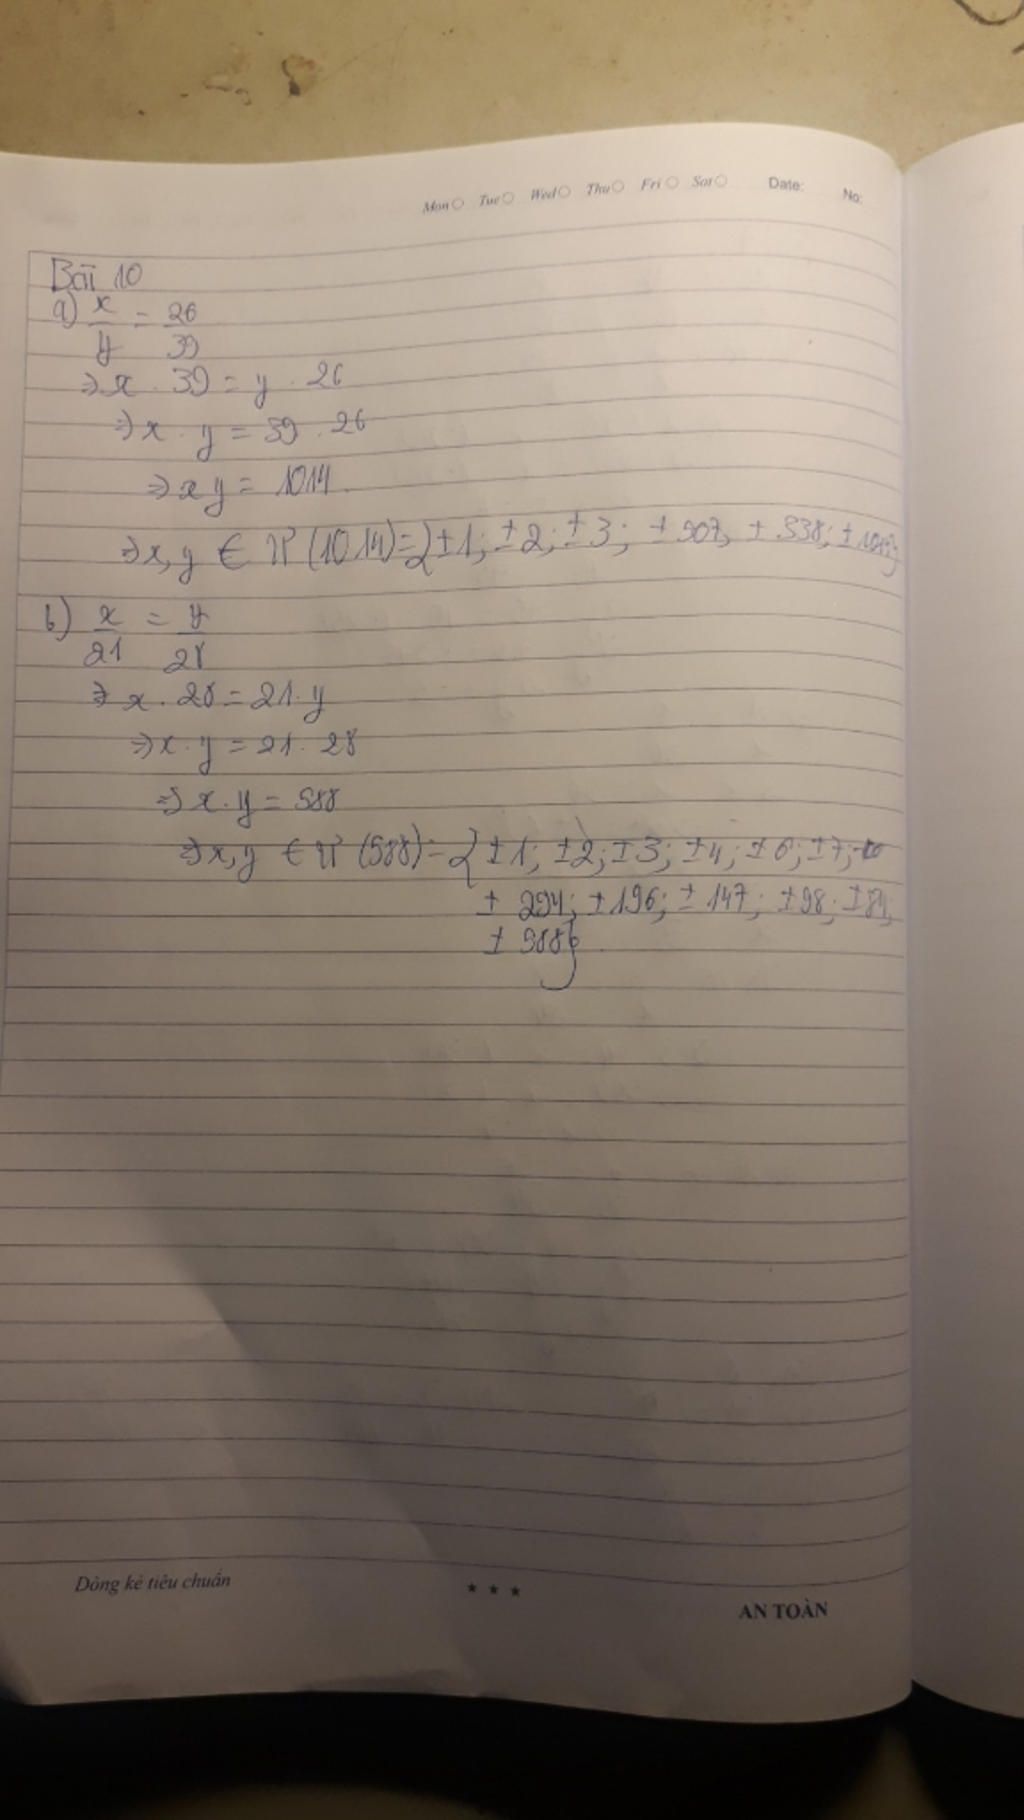 Mon Tue Wed Thu Fri Sat Date: No:
Bài 10
a) x/y = 26/39
⇒ x . 39 = y . 26
⇒ x . y = 39 . 26
⇒ xy = 1014
⇒ x, y ∈ Ư (1014) = { ±1; ±2; ±3; ±507; ±338; ±1014}
b) x/21 = y/28
⇒ x . 28 = 21 . y
⇒ x . y = 21 . 28
⇒ x . y = 588
⇒ x, y ∈ Ư (588) = { ±1; ±2; ±3; ±4; ±6; ±7;
± 294; ±196; ± 147; ±98; ±84;
± 588}
Dòng kẻ tiêu chuẩn
★ ★ ★
AN TOÀN